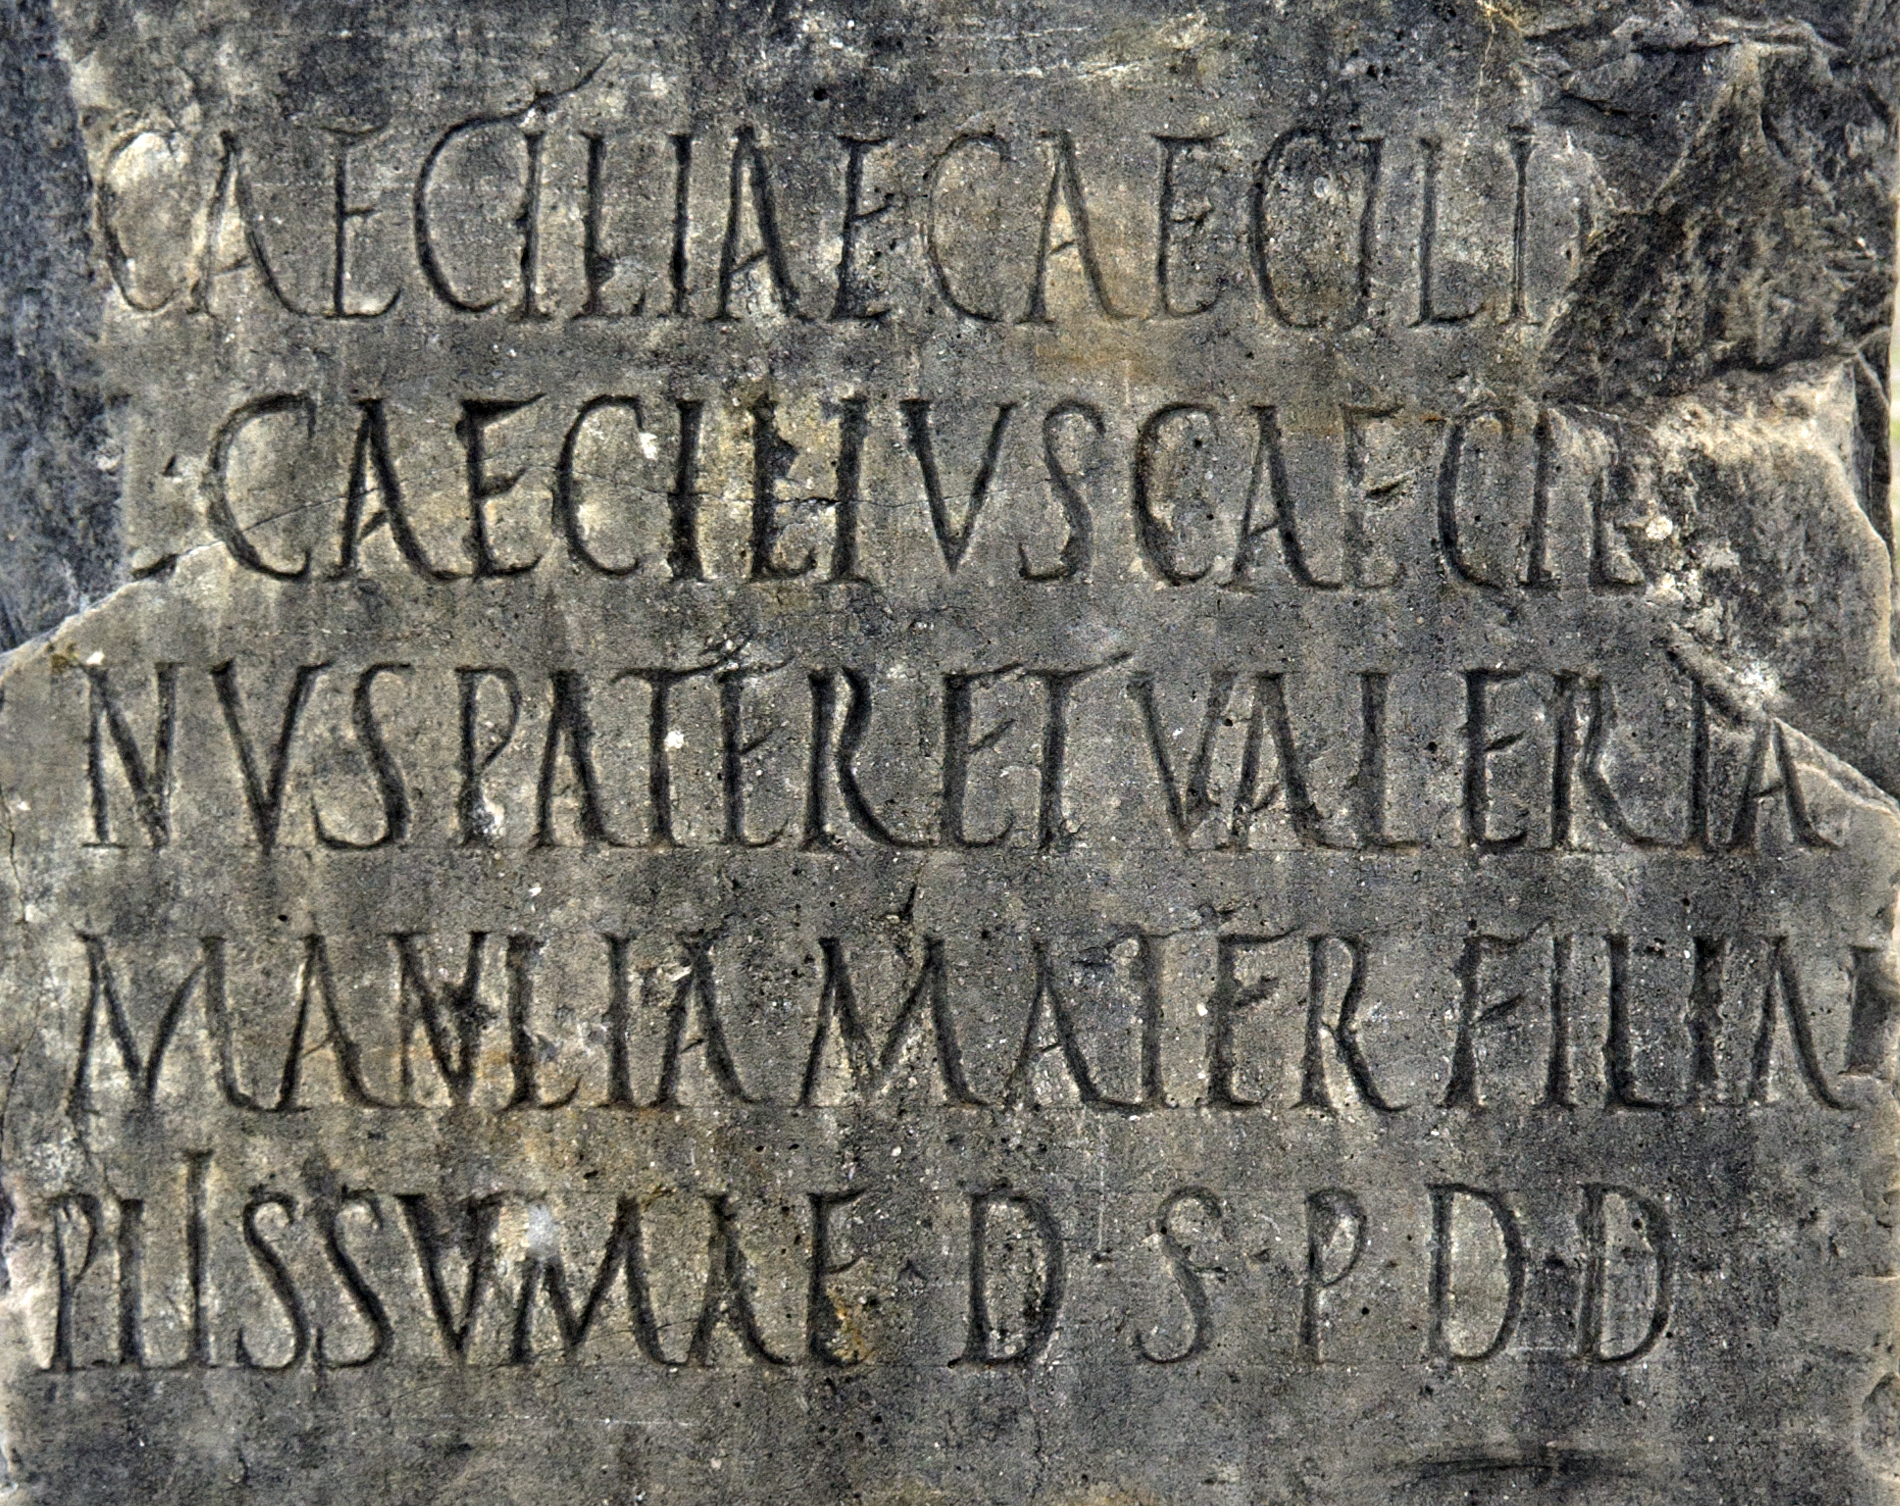 CAECILIAE CAECILI
L CAECILIVS CAECIL
NVS PATER ET VALERIA
MANLIA MATER FILIAE
PIISSVMAE D S P D D